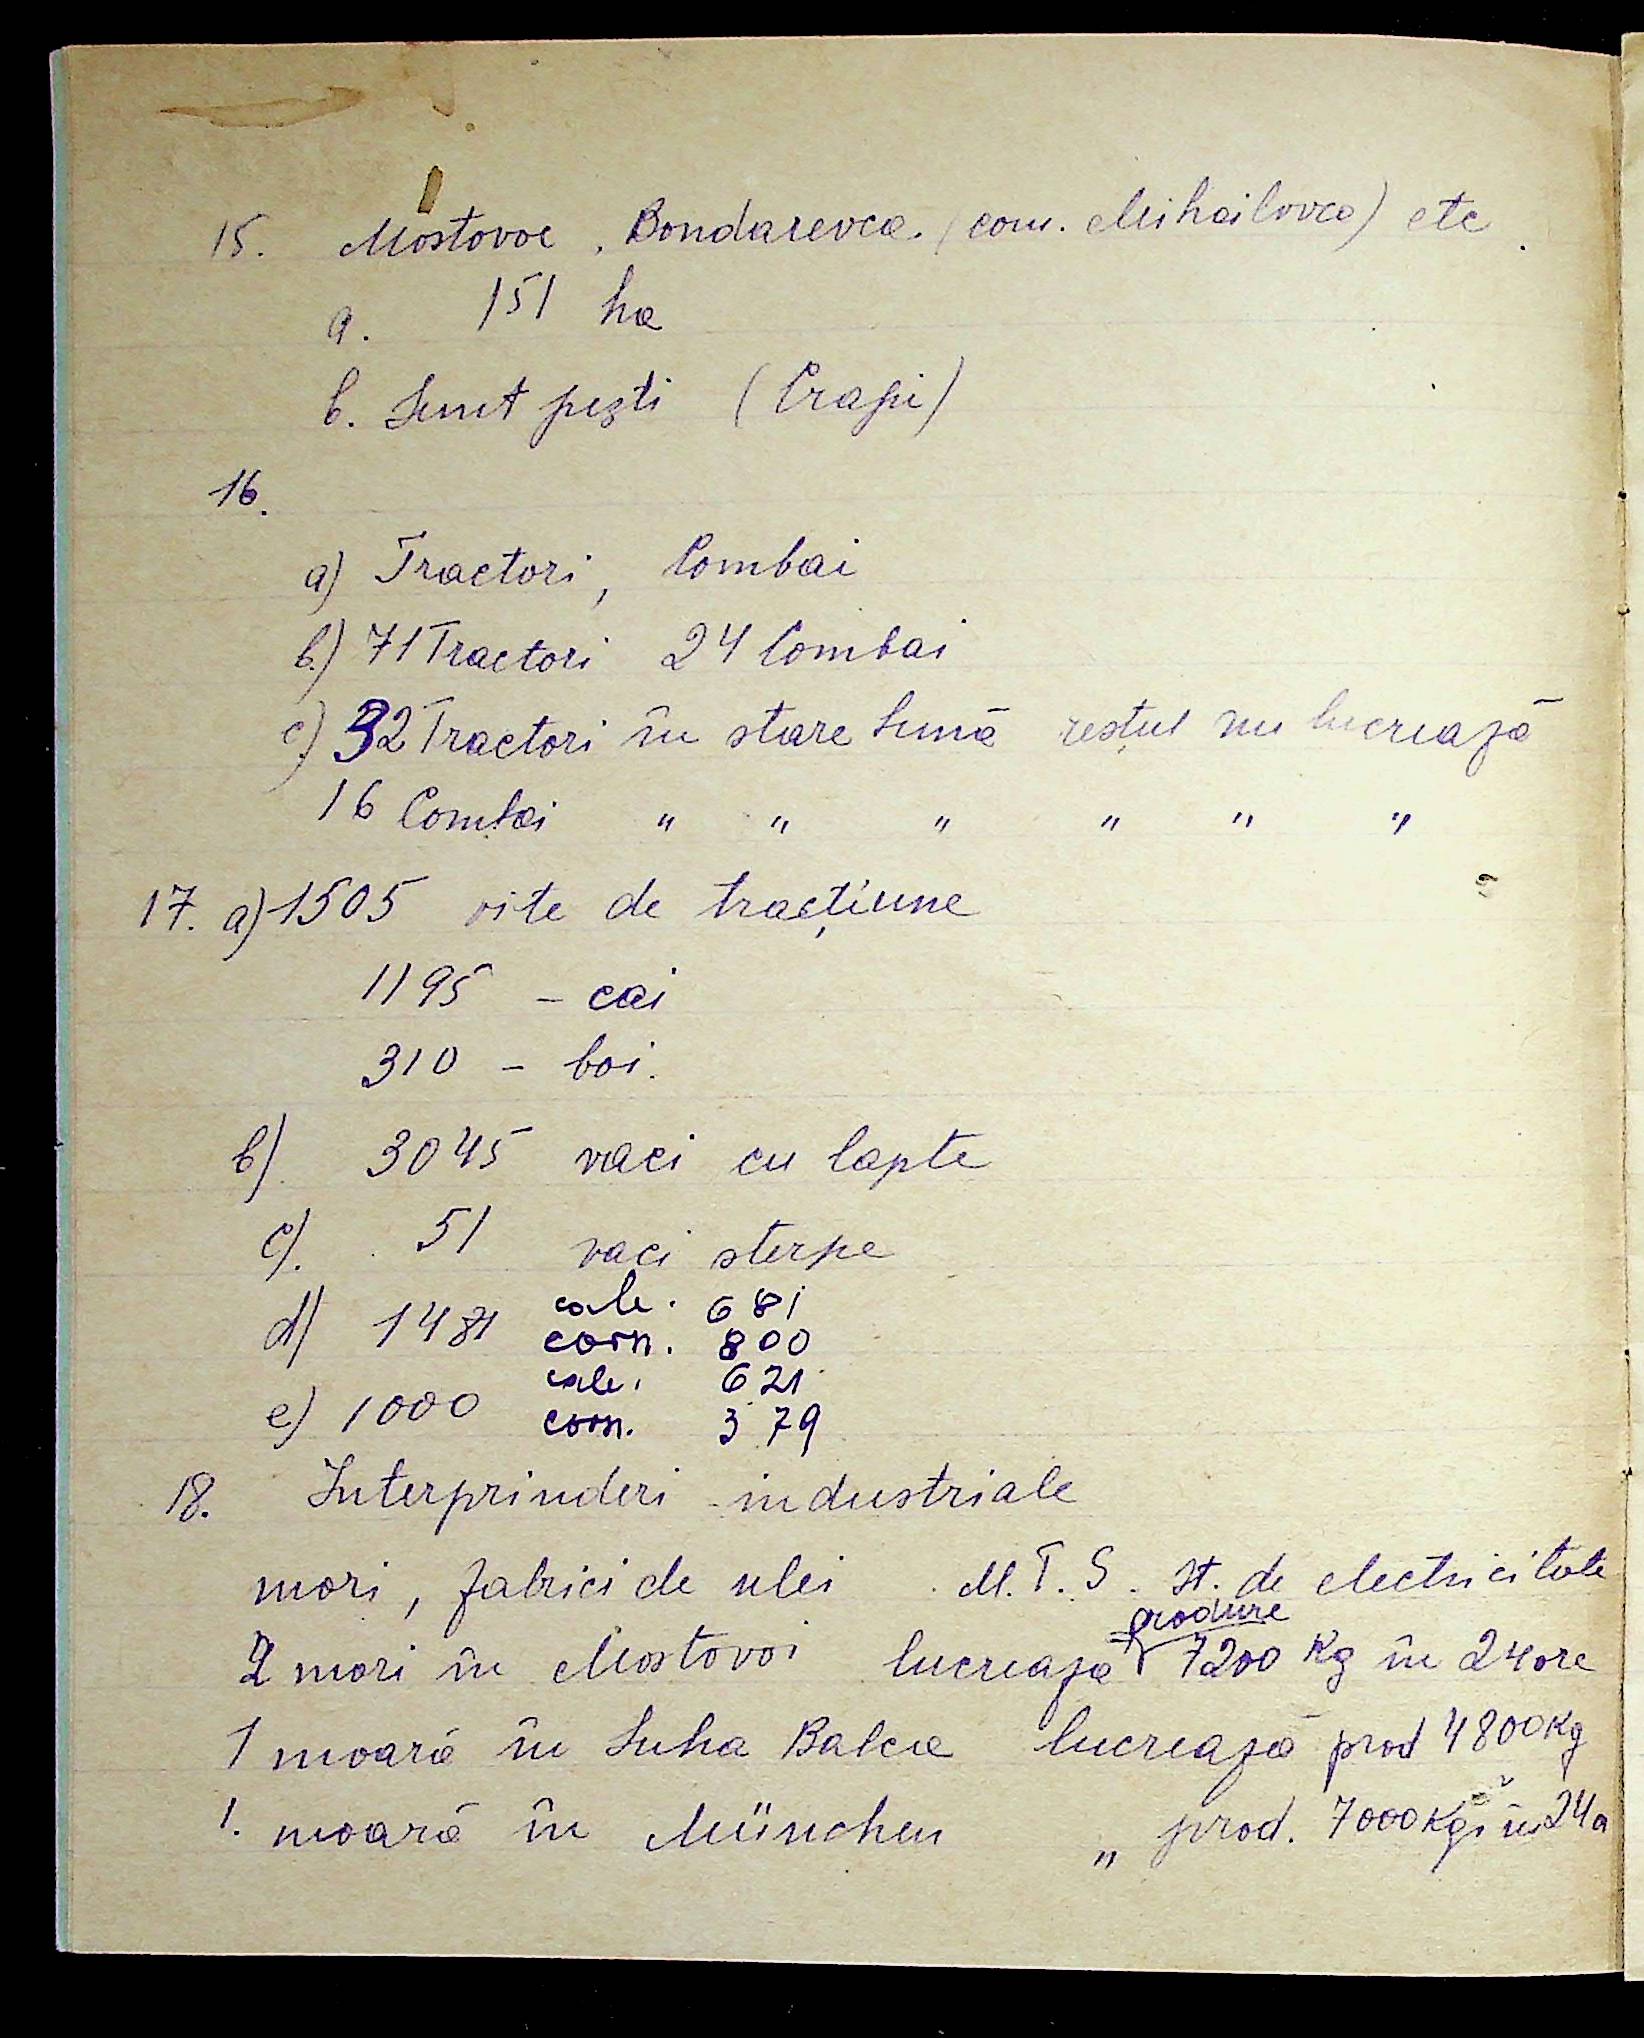 15. Mostovoe, Bondarevca (com. Mihailovca) etc.
a. 151 ha
b. Sunt peşti (Crapi)
16.
a) Tractori, Combai
b.) 71 Tractori 24 Combai
c) 32 Tractori în stare bună restul nu lucrează
16 Combai " " " " " "
17. a) 1505 vite de tracţiune
1195 - cai
310 - boi.
b) 3045 vaci cu lapte
c). 51 vaci sterpe
d) 1481 cab. 681
corn. 800
e) 1000 cab. 621
corn. 379
18. Interprinderi industriale
mori, fabrici de ulei M.T.S. st. de electricitate
2 mori în Mostovoi lucrează produre 7200 Kg în 24 ore
1 moară în Suha Balca lucrează prod 4800 Kg
1. moară în München " prod. 7000 Kg. în 24 o